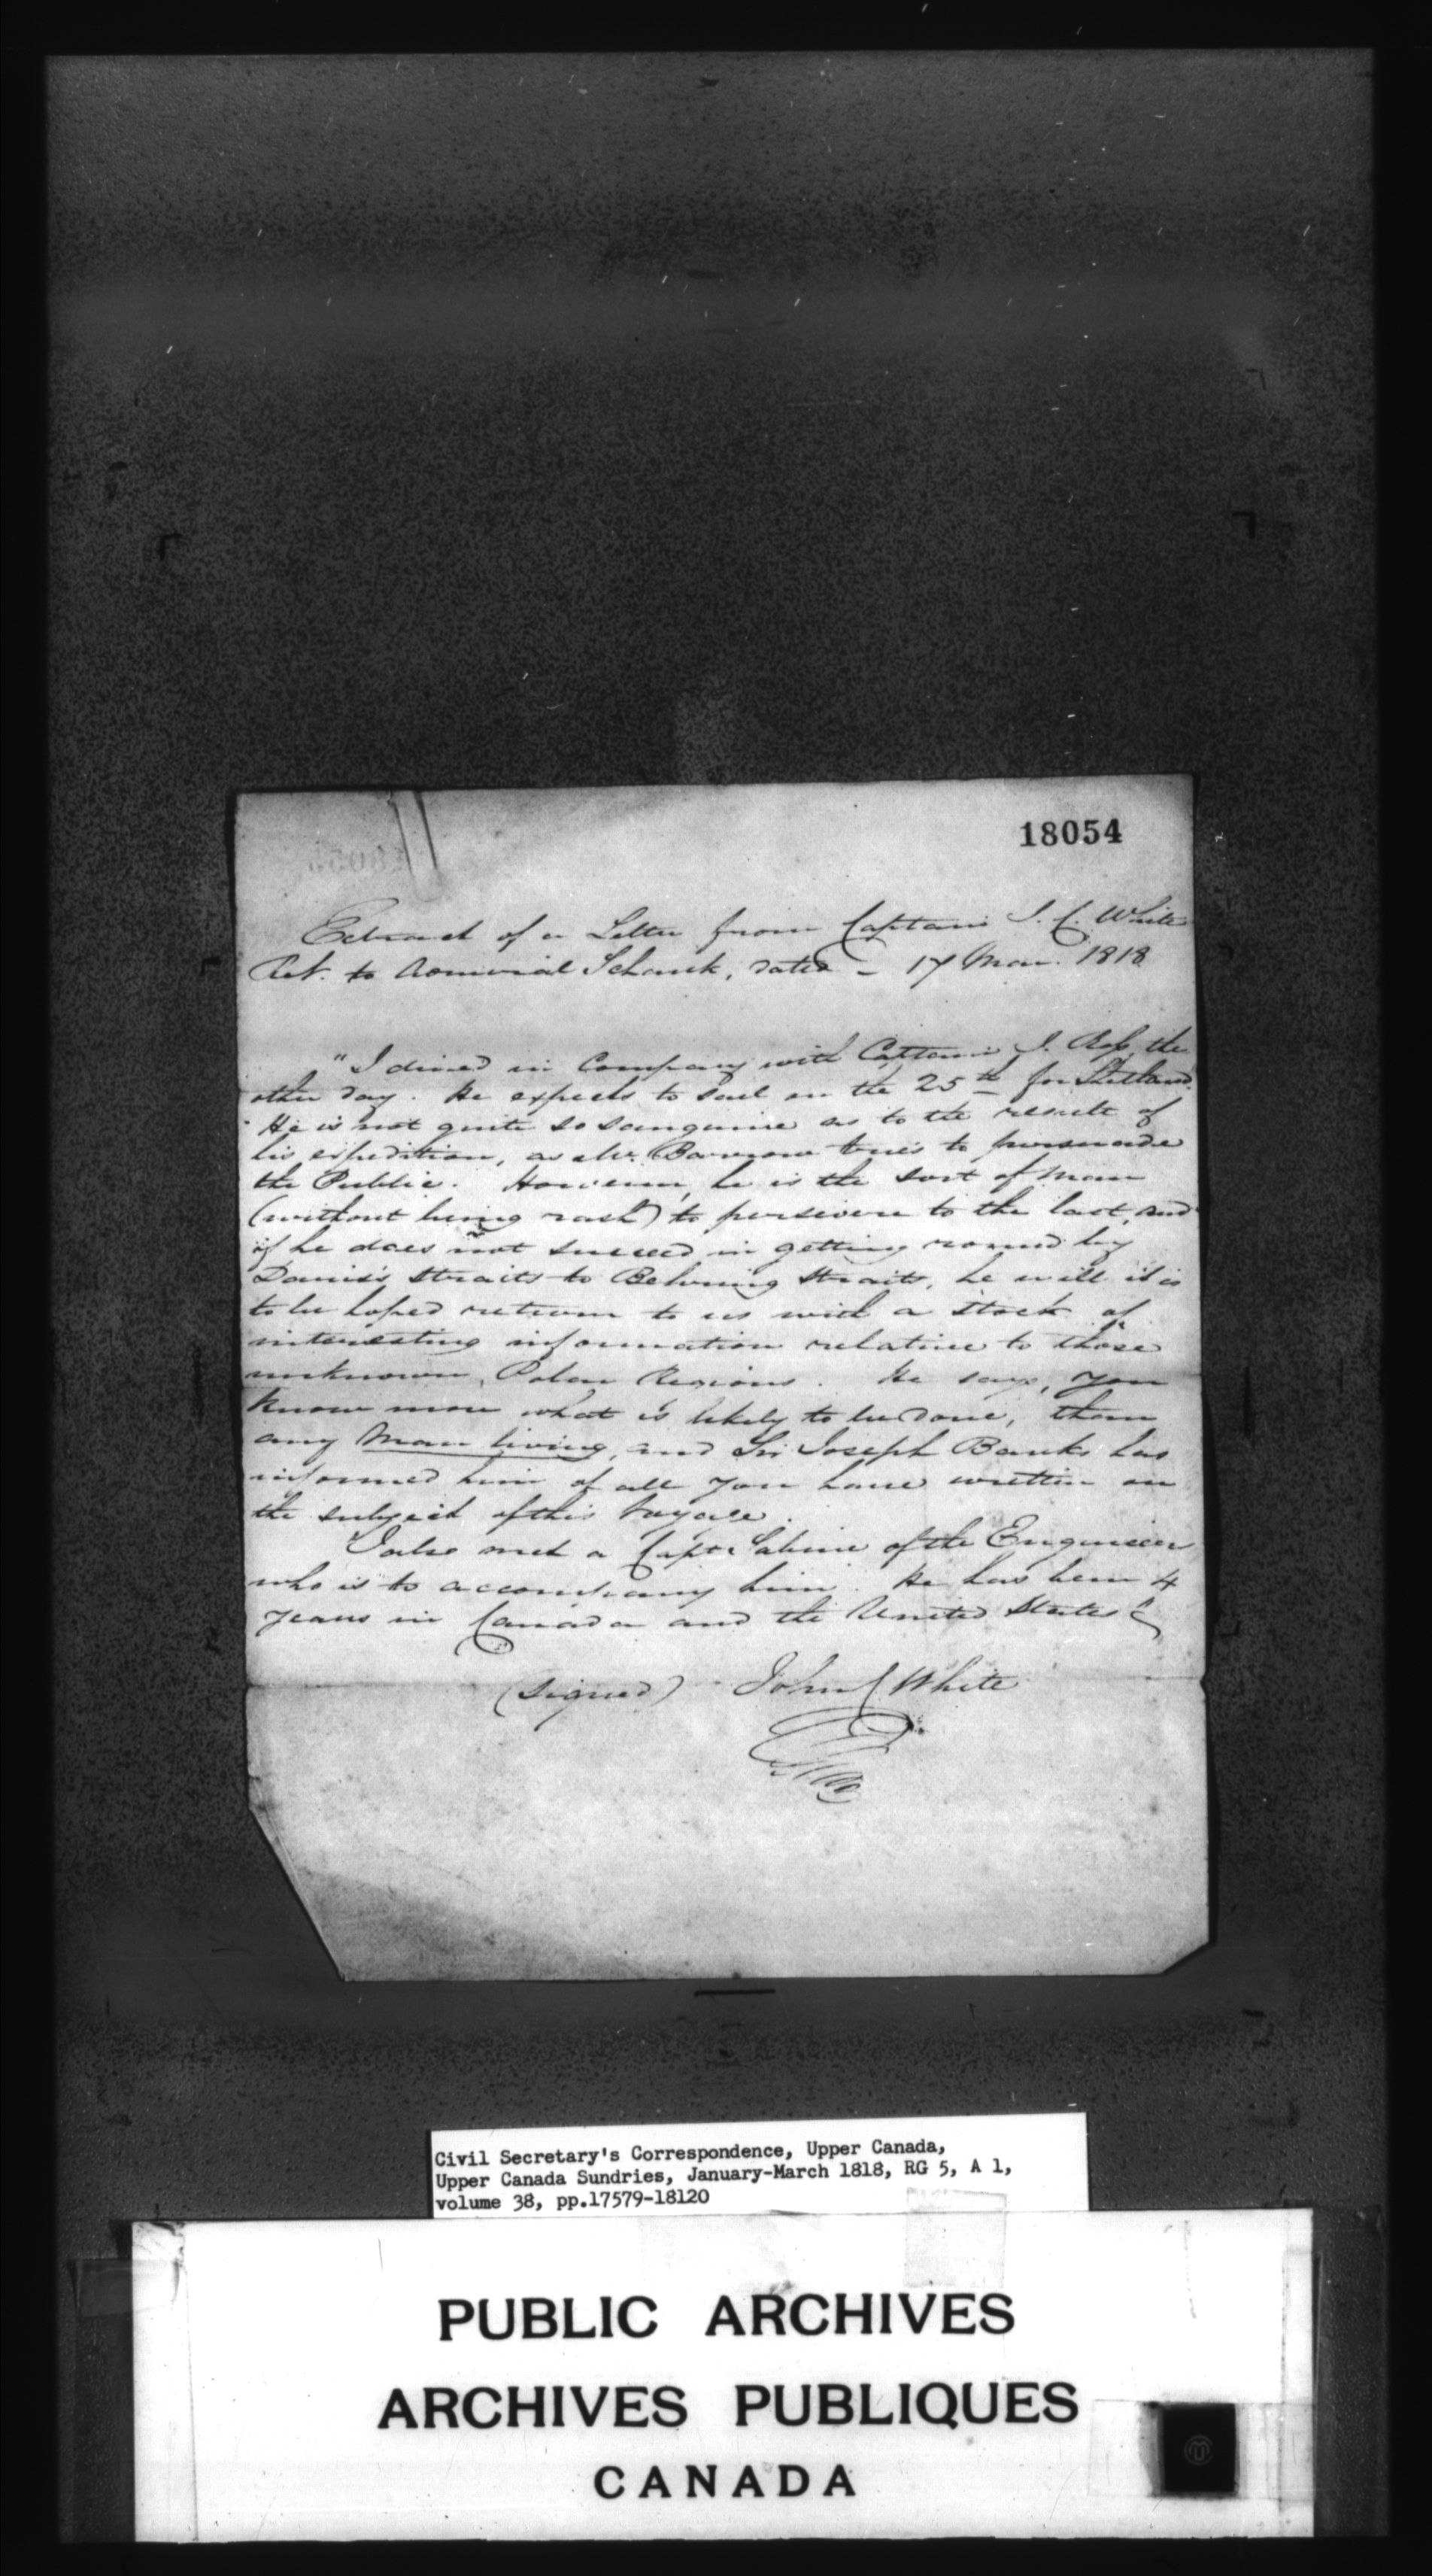 18054
Extract of a Letter from Captain J. C. White
to Admiral Schank, dated - 17 Mar. 1818
"I dined in Company with Captain J. Ross, the
other day. He expects to sail on the 25th for Shetland.
He is not quite so sanguine as to the result of
his expedition, as Mr. Barrow tries to persuade
the Public. However, he is the sort of man
(without being rash) to persevere to the last, and
if he does not succeed in getting round by
Davis's Straits to Behring Straits, he will it is
to be hoped return to us with a stock of
interesting information relative to those
unknown, Polar Regions. He says, you
know more what is likely to be done, than
any Man living, and Sir Joseph Banks has
informed him of all you have written on
the subject of this Voyage.
I also met a Capt. Sabine of the Engineers
who is to accompany him. He has been 4
years in Canada and the United States"
(Signed) John C White
Civil Secretary's Correspondence, Upper Canada,
Upper Canada Sundries, January-March 1818, RG 5, A 1,
volume 38, pp.17579-18120
PUBLIC ARCHIVES
ARCHIVES PUBLIQUES
CANADA